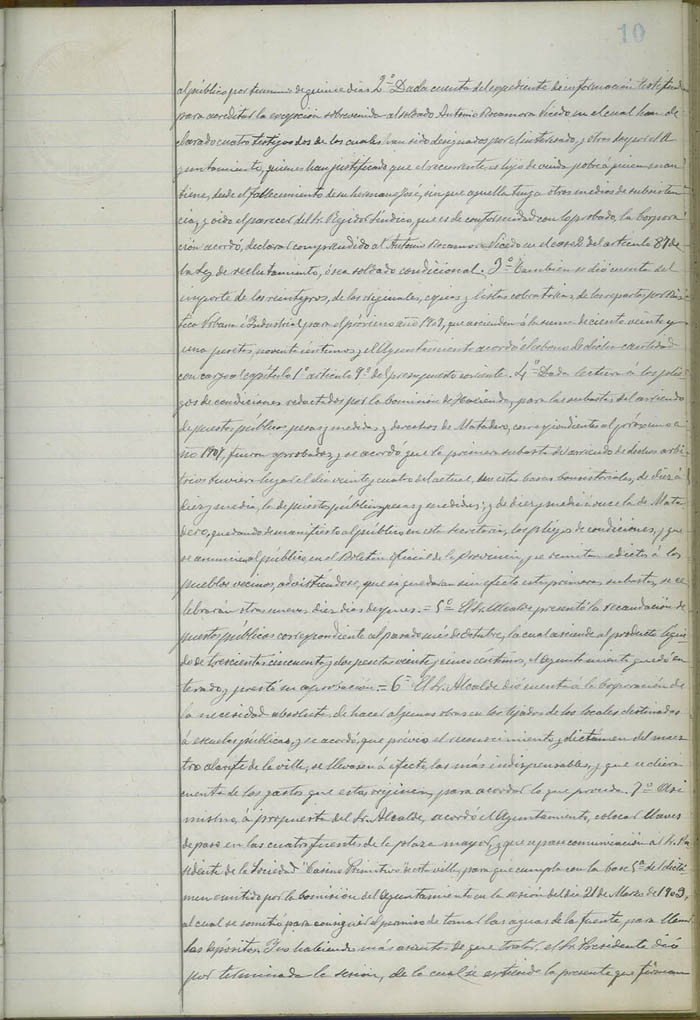 10
al público por termino de quince dias 2º Dada cuenta del expediente de informacion testifical
para acreditar la excepcion sobrevenida al soldado Antonio Rocamora Vicedo en el cual han de-
clarado cuatro testigos dos de los cuales han sido designados por el interesado, y otros dos por el A-
yuntamiento, quienes han justificado que el recurrente es hijo de viuda pobre á quien man-
tiene, desde el fallecimiento de su hermano José, sin que aquella tenga otros medios de subsisten-
cia, y oido el parecer del Sr. Regidor Sindico, que es de conformidad con lo probado, la Corpora-
ción acordó, declarar comprendido al Antonio Rocamora Vicedo en el caso 2º del articulo 87 de
la Ley de reclutamiento, ó sea soldado condicional. 3º Tambien se dió cuenta del
importe de los reintegros, de los originales, copias y listas cobratorias, de los repartos, por Rús-
tica Urbana é Industrial para el próximo año 1907, que ascienden á la suma de ciento veinte y
una pesetas, noventa céntimos y el Ayuntamiento acordó el abono de dicha cantidad
con cargo al capítulo 1º articulo 9º del presupuesto corriente. 4º Dada lectura á los plie-
gos de condiciones redactados por la Comision de Hacienda, para las subastas del arriendo
de puestos públicos, pesas y medidas y derechos de Matadero, correspondientes al próximo a-
ño 1907, fueron aprobados, y se acordó que la primera subasta de arriendo de dichos arbi-
trios tuviera lugar el dia veinte y cuatro del actual, en estas casas Consistoriales, de diez á
diez y media, la de puestos públicos, pesas y medidas; y de diez y media á once la de Mata-
dero, quedando de manifiesto al público en esta Secretaria, los pliegos de condiciones, y que
se anuncie al público en el Boletin oficial de la Provincia, y se remitan edictos á los
pueblos vecinos, advirtiéndose, que si quedaran sin efecto esta primera subasta, se ce-
lebrarán otras nuevas diez dias despues. = 5º El Sr. Alcalde presentó la recaudación de
puestos públicos correspondiente al pasado més de Octubre, la cual asciende al producto líqui-
do de trescientas cincuenta y dos pesetas veinte y cinco céntimos, el Ayuntamiento quedó en-
terado y prestó su aprobación. = 6º El Sr. Alcalde dió cuenta á la Corporación de
la necesidad absoluta de hacer algunas obras en los tejados de los locales destinados
á escuelas públicas, y se acordó que prévio el reconocimiento y dictámen del maes-
tro alarife de la villa, se llevasen á efecto las más indispensables, y que se diera
cuenta de los gastos que estas exigieren, para acordar lo que proceda. 7º Así
mismo, á propuesta del Sr. Alcalde, acordó el Ayuntamiento, colocar llaves
de paso en las cuatro fuentes de la plaza mayor, y que se pase comunicación al Sr. Pre-
sidente de la Sociedad "Casino Primitivo" de esta villa, para que cumpla con la base 5ª del dictá-
men emitido por la comisión del Ayuntamiento en la sesión del dia 21 de Marzo de 1903,
al cual se sometió para conseguir el permiso de tomar las aguas de la fuente, para llenar
sus depósitos. Y no habiendo más asuntos de que tratar, el Sr. Presidente dió
por terminada la sesión, de la cual se extiende la presente que firman